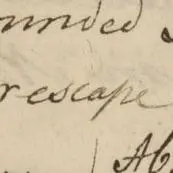 unded
r escape
Ab